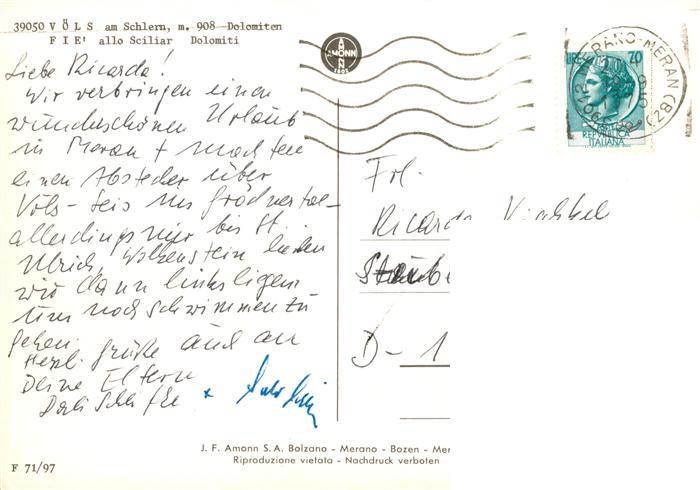 39050 VÖLS am Schlern, m. 908 Dolomiten
FIE' allo Sciliar Dolomiti
Liebe Ricarda!
Wir verbringen einen
wunderschönen Urlaub
in Meran + machten
einen Abstecher über
Völs - Seis ins Grödnertal -
allerdings nur bis St.
Ulrich, Wolkenstein ließen
wir dann links liegen
um noch schwimmen zu
gehen.
Herzl. Grüße auch an
Deine Eltern
AMONN
70
REPUBBLICA
ITALIANA
MERANO-MERAN (ZB)
Frl.
Ricarda
D-1
J. F. Amonn S.A. Bolzano - Merano - Bozen - Mer
Riproduzione vietata - Nachdruck verboten
F 71/97